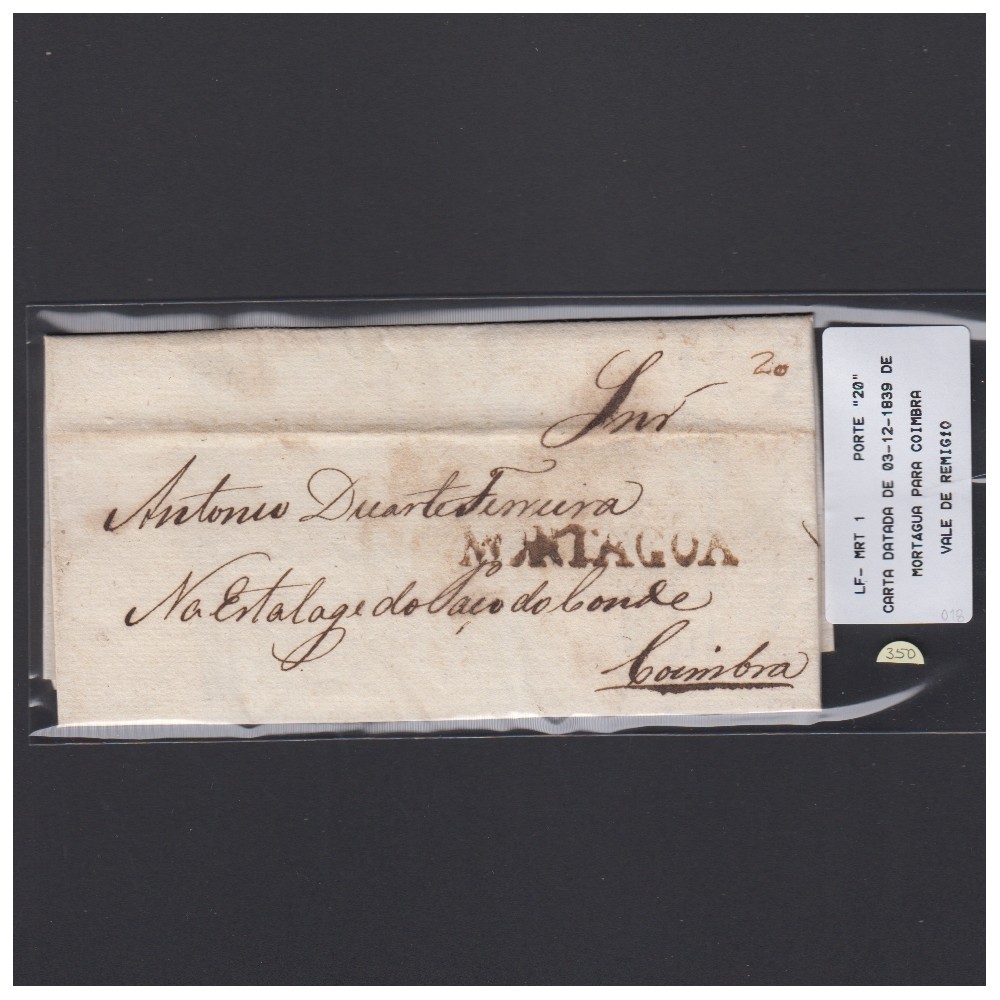 20
Snr
Antonio Duarte Ferreira
MORTAGOA
Na Estalage do Paço do Conde
Coimbra
LF- MRT 1 PORTE "20"
CARTA DATADA DE 03-12-1839 DE
MORTÁGUA PARA COIMBRA
VALE DE REMIGIO
018
350